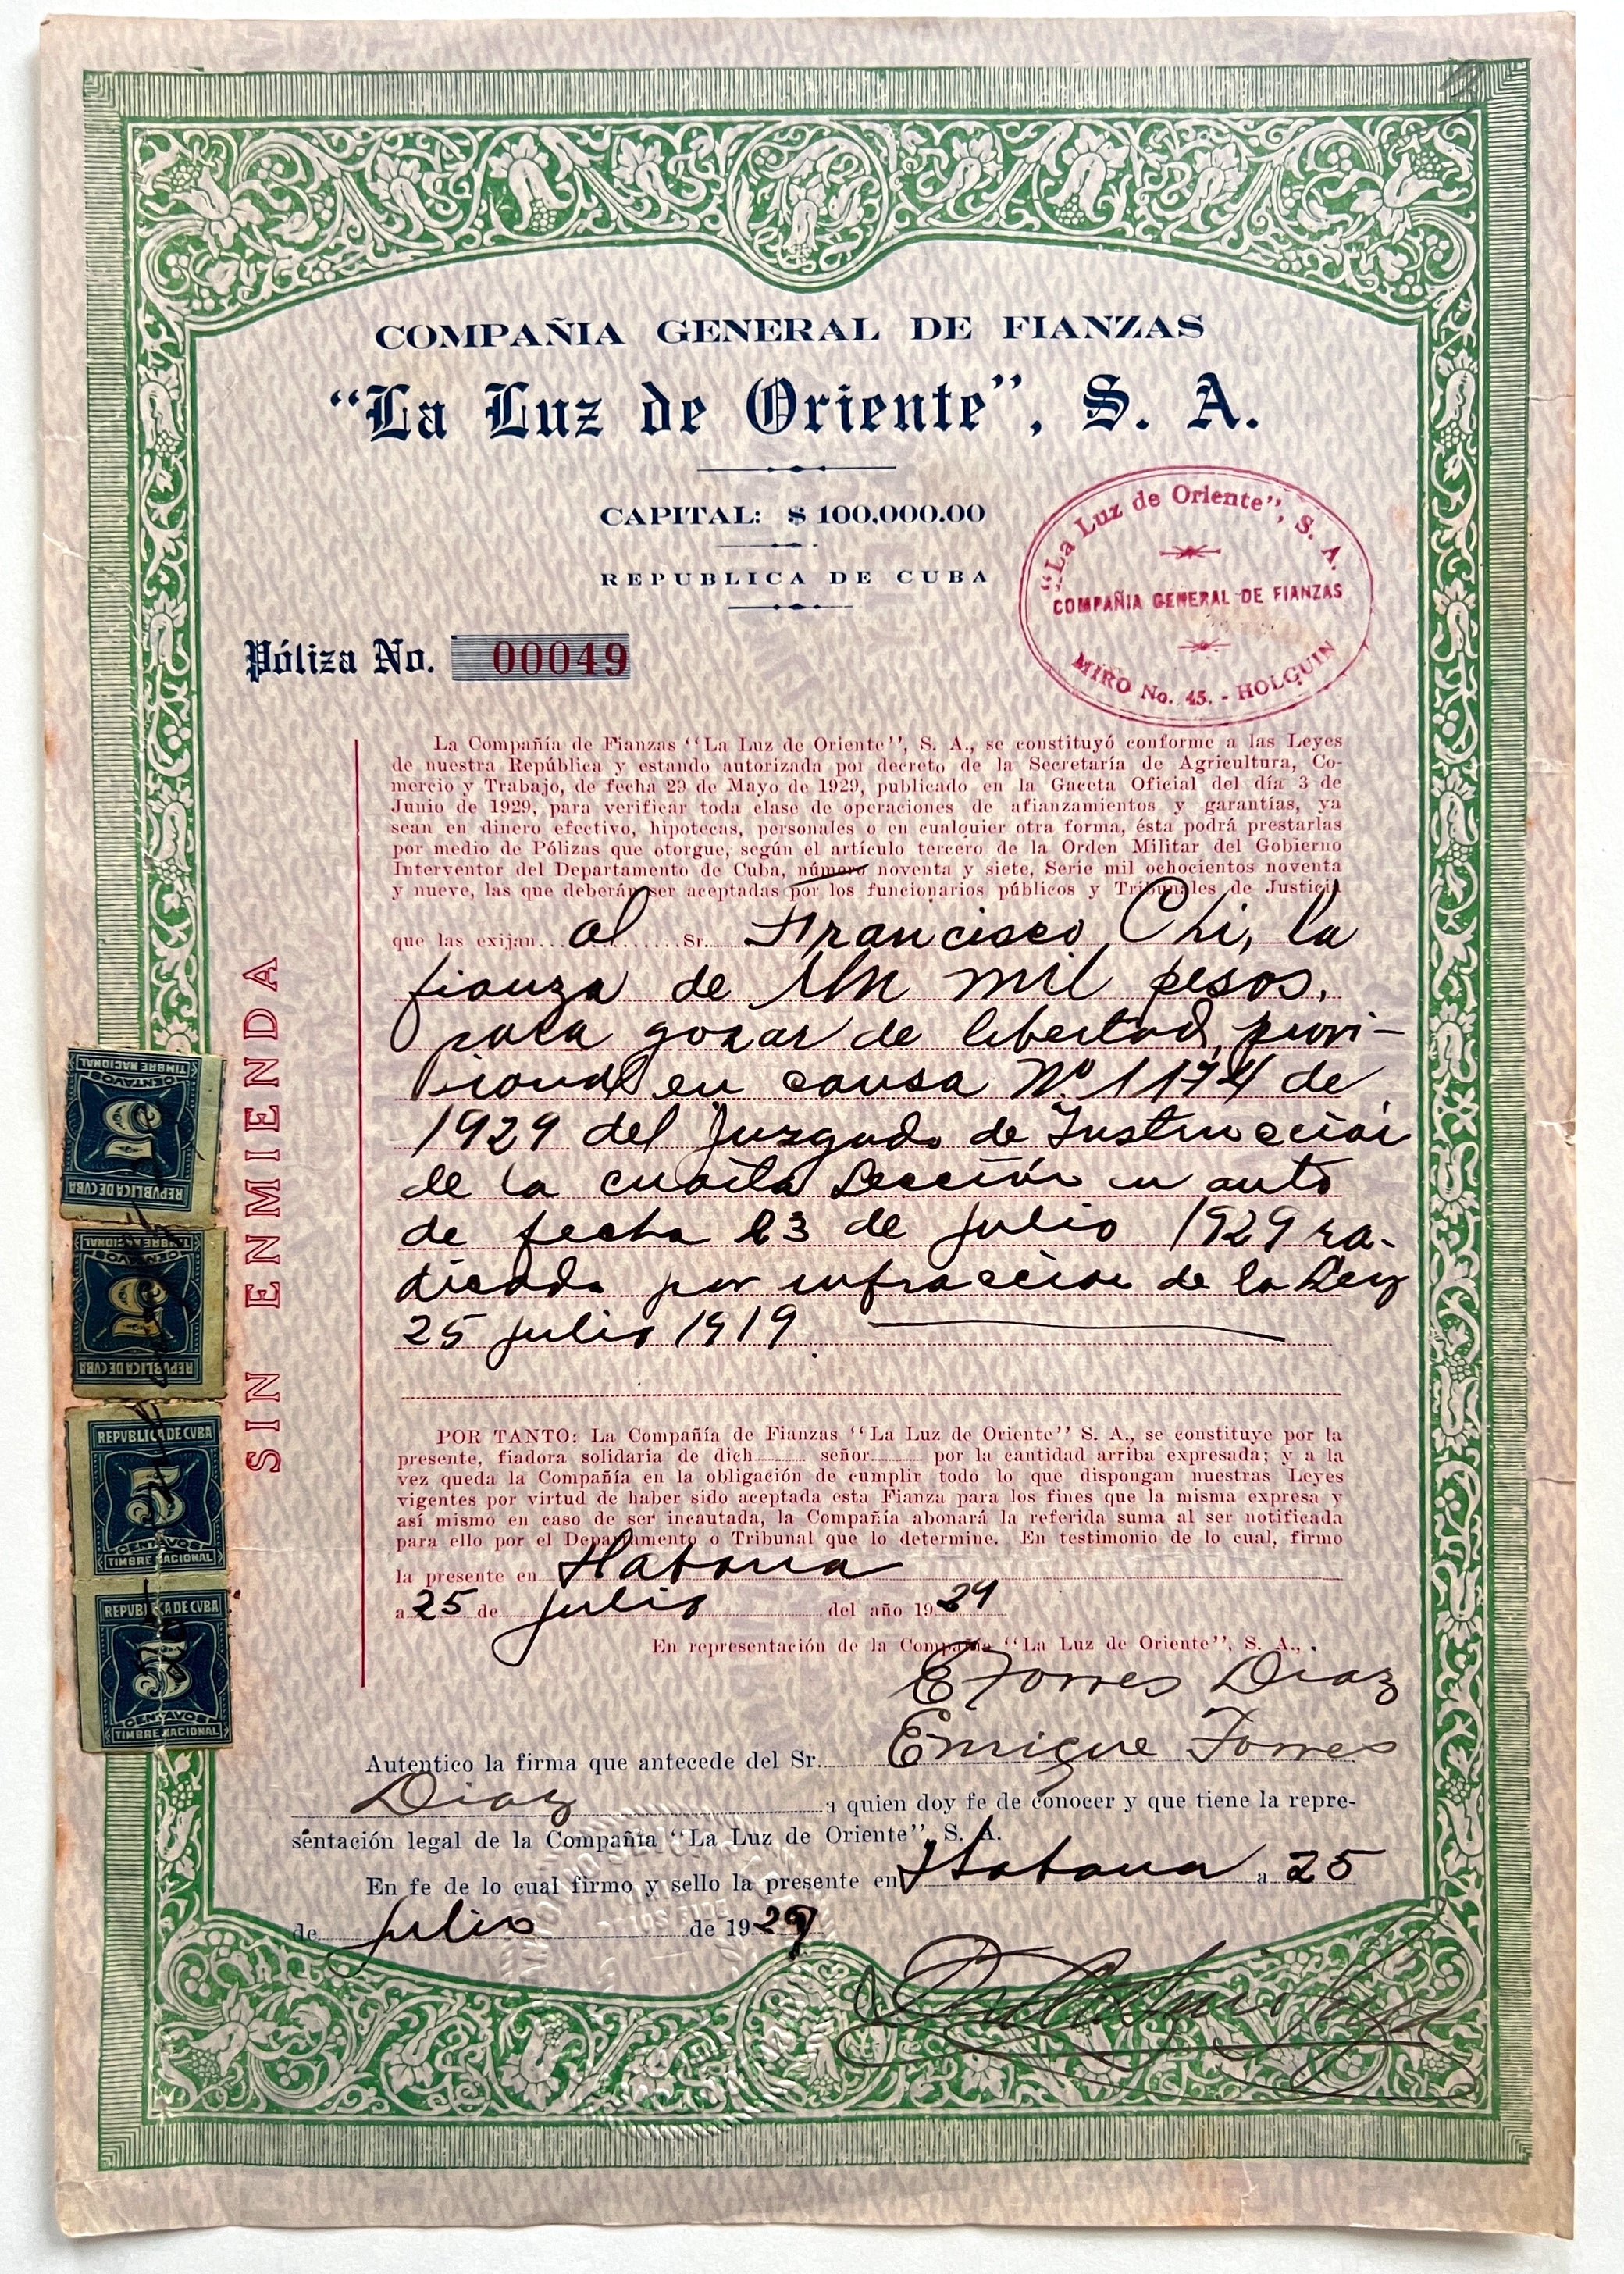 COMPAÑIA GENERAL DE FIANZAS
“La Luz de Oriente”, S. A.
CAPITAL: $ 100,000.00
REPUBLICA DE CUBA
“La Luz de Oriente”, S. A.
COMPAÑIA GENERAL DE FIANZAS
MIRO No. 45. - HOLGUIN
Póliza No. 00049
La Compañía de Fianzas “La Luz de Oriente”, S. A., se constituyó conforme a las Leyes
de nuestra República y estando autorizada por decreto de la Secretaría de Agricultura, Co-
mercio y Trabajo, de fecha 29 de Mayo de 1929, publicado en la Gaceta Oficial del día 3 de
Junio de 1929, para verificar toda clase de operaciones de afianzamientos y garantías, ya
sean en dinero efectivo, hipotecas, personales o en cualquier otra forma, ésta podrá prestarlas
por medio de Pólizas que otorgue, según el artículo tercero de la Orden Militar del Gobierno
Interventor del Departamento de Cuba, número noventa y siete, Serie mil ochocientos noventa
y nueve, las que deberán ser aceptadas por los funcionarios públicos y Tribunales de Justicia
que las exijan al Sr. Francisco Chi, la
fianza de un mil pesos,
para gozar de libertad provi-
sional en causa Nº 1174 de
1929 del Juzgado de Instruccion
de la cuarta Sección en auto
de fecha 23 de julio 1929 ra-
dicada por infraccion de la Ley
25 julio 1919
SIN ENMIENDA
TIMBRE NACIONAL
CENTAVOS
10
REPVBLICA DE CVBA
TIMBRE NACIONAL
CENTAVOS
10
REPVBLICA DE CVBA
REPVBLICA DE CVBA
5
CENTAVOS
TIMBRE NACIONAL
REPVBLICA DE CVBA
5
CENTAVOS
TIMBRE NACIONAL
POR TANTO: La Compañía de Fianzas “La Luz de Oriente” S. A., se constituye por la
presente, fiadora solidaria de dich señor por la cantidad arriba expresada; y a la
vez queda la Compañía en la obligación de cumplir todo lo que dispongan nuestras Leyes
vigentes por virtud de haber sido aceptada esta Fianza para los fines que la misma expresa y
así mismo en caso de ser incautada, la Compañía abonará la referida suma al ser notificada
para ello por el Departamento o Tribunal que lo determine. En testimonio de lo cual, firmo
la presente en Habana
a 25 de julio del año 1929
En representación de la Compañía “La Luz de Oriente”, S. A.,
E Torres Diaz
Autentico la firma que antecede del Sr. Enrique Torres
Diaz a quien doy fe de conocer y que tiene la repre-
sentación legal de la Compañía “La Luz de Oriente”, S. A.
En fe de lo cual firmo y sello la presente en Habana a 25
de julio de 1929